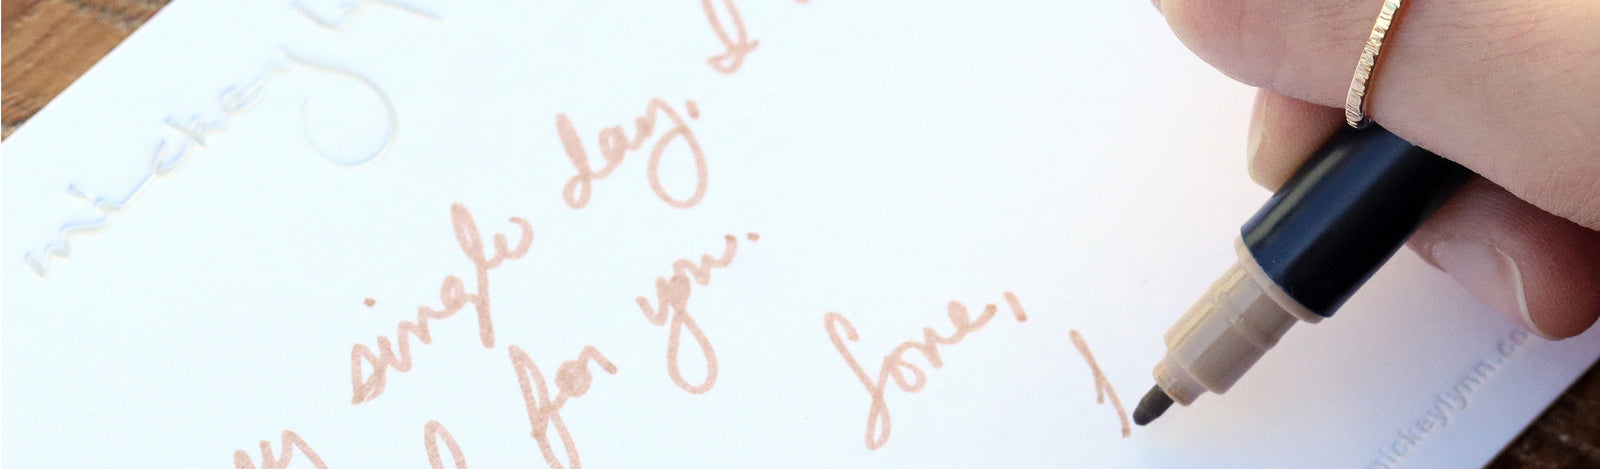 mickey ly
single day. I
for you.
Love,
mickeylynn.co